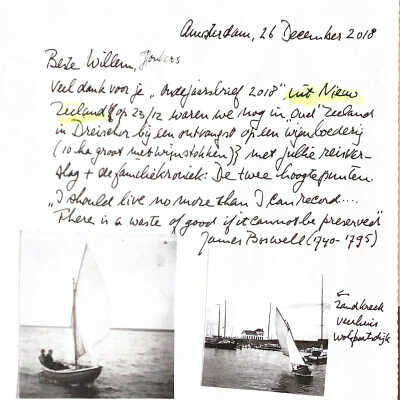 Amsterdam, 26 December 2018
Beste Willem, Jonkers
Veel dank voor je „oudejaarsbrief 2018” uit Nieuw
Zeeland { op 23/12 waren we nog in „oud” Zeeland
in Dreischor bij een ontvangst op een wijnboederij
(10 ha groot met wijnstokken)} met jullie reisver-
slag + de familiekroniek: De twee hoogtepunten.
„I should live no more than I can record....
There is a waste of good if it cannot be preserved”
James Boswell (1740-1795)
Zandkreek
veerhuis
wolphaartsdijk